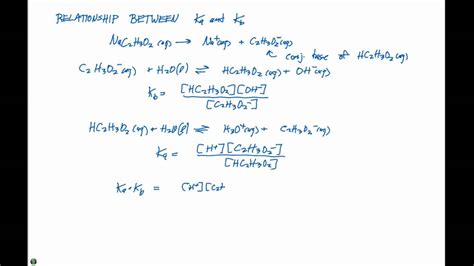 RELATIONSHIP BETWEEN Ka and Kb
NaC2H3O2 (aq) → Na+(aq) + C2H3O2-(aq)
conj. base of HC2H3O2
C2H3O2-(aq) + H2O(l) ⇌ HC2H3O2(aq) + OH-(aq)
Kb = [HC2H3O2][OH-]
[C2H3O2-]
HC2H3O2(aq) + H2O(l) ⇌ H3O+(aq) + C2H3O2-(aq)
Ka = [H+][C2H3O2-]
[HC2H3O2]
Ka·Kb = [H+][C2H